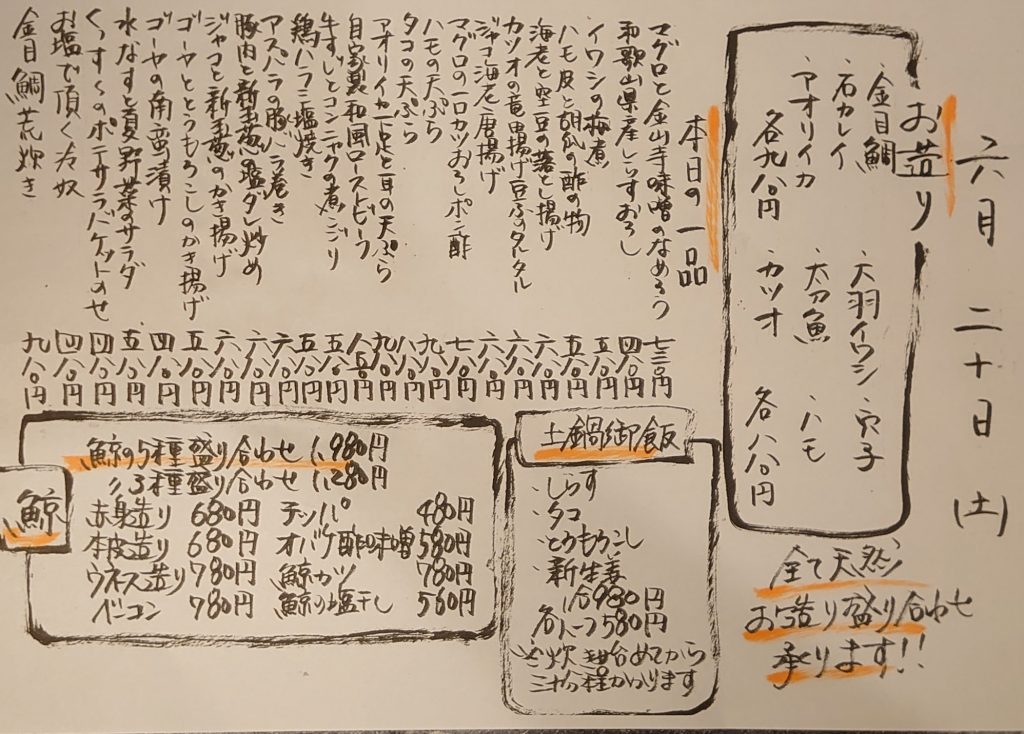 六月二十日(土)
お造り
・金目鯛
・石カレイ
・アオリイカ
各九八〇円
・大羽イワシ・穴子
・太刀魚・ハモ
・カツオ 各八八〇円
全て天然
お造り盛り合わせ
承ります!!
本日の一品
マグロと金山寺味噌のなめろう 七三〇円
和歌山県産しらすおろし 四八〇円
イワシの梅煮 五八〇円
ハモ皮と胡瓜の酢の物 五八〇円
海老と空豆の落とし揚げ 六八〇円
カツオの竜田揚げ豆ふのタルタル 六八〇円
ジャコ海老唐揚げ 六八〇円
マグロの一口カツおろしポン酢 七八〇円
ハモの天ぷら 九八〇円
タコの天ぷら 八八〇円
アオリイカ下足と耳の天ぷら 九八〇円
自家製和風ローストビーフ 八五〇円
牛すじとコンニャクの煮こごり 五八〇円
鶏ハラミ塩焼き 五八〇円
アスパラの豚バラ巻き 六八〇円
豚肉と新生姜の塩ダレ炒め 六八〇円
ジャコと新生姜のかき揚げ 六八〇円
ゴーヤととうもろこしのかき揚げ 五八〇円
ゴーヤの南蛮漬け 四八〇円
水なすと夏野菜のサラダ 五八〇円
くんすくのポテサラバケットのせ 四八〇円
お塩で頂く冷奴 四八〇円
金目鯛荒炊き 九八〇円
土鍋御飯
・しらす
・タコ
・とうもろこし
・新生姜
一合980円
各ハーフ580円
炊き始めてから
三十分程かかります
鯨
鯨の5種盛り合わせ 1,980円
〃3種盛り合わせ 1,280円
赤身造り 680円 テッパ 480円
本皮造り 680円 オバケ酢味噌 580円
ウネス造り 780円 鯨カツ 780円
ベーコン 780円 鯨の塩干し 560円